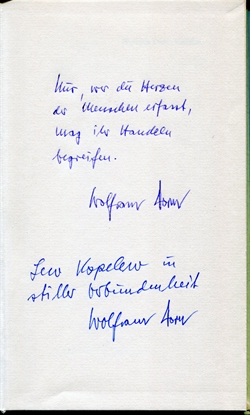 Nur, wer die Herzen
der Menschen erfasst,
mag ihr Handeln
begreifen.
Wolfram Dorn
Lew Kopelew in
stiller Verbundenheit
Wolfram Dorn